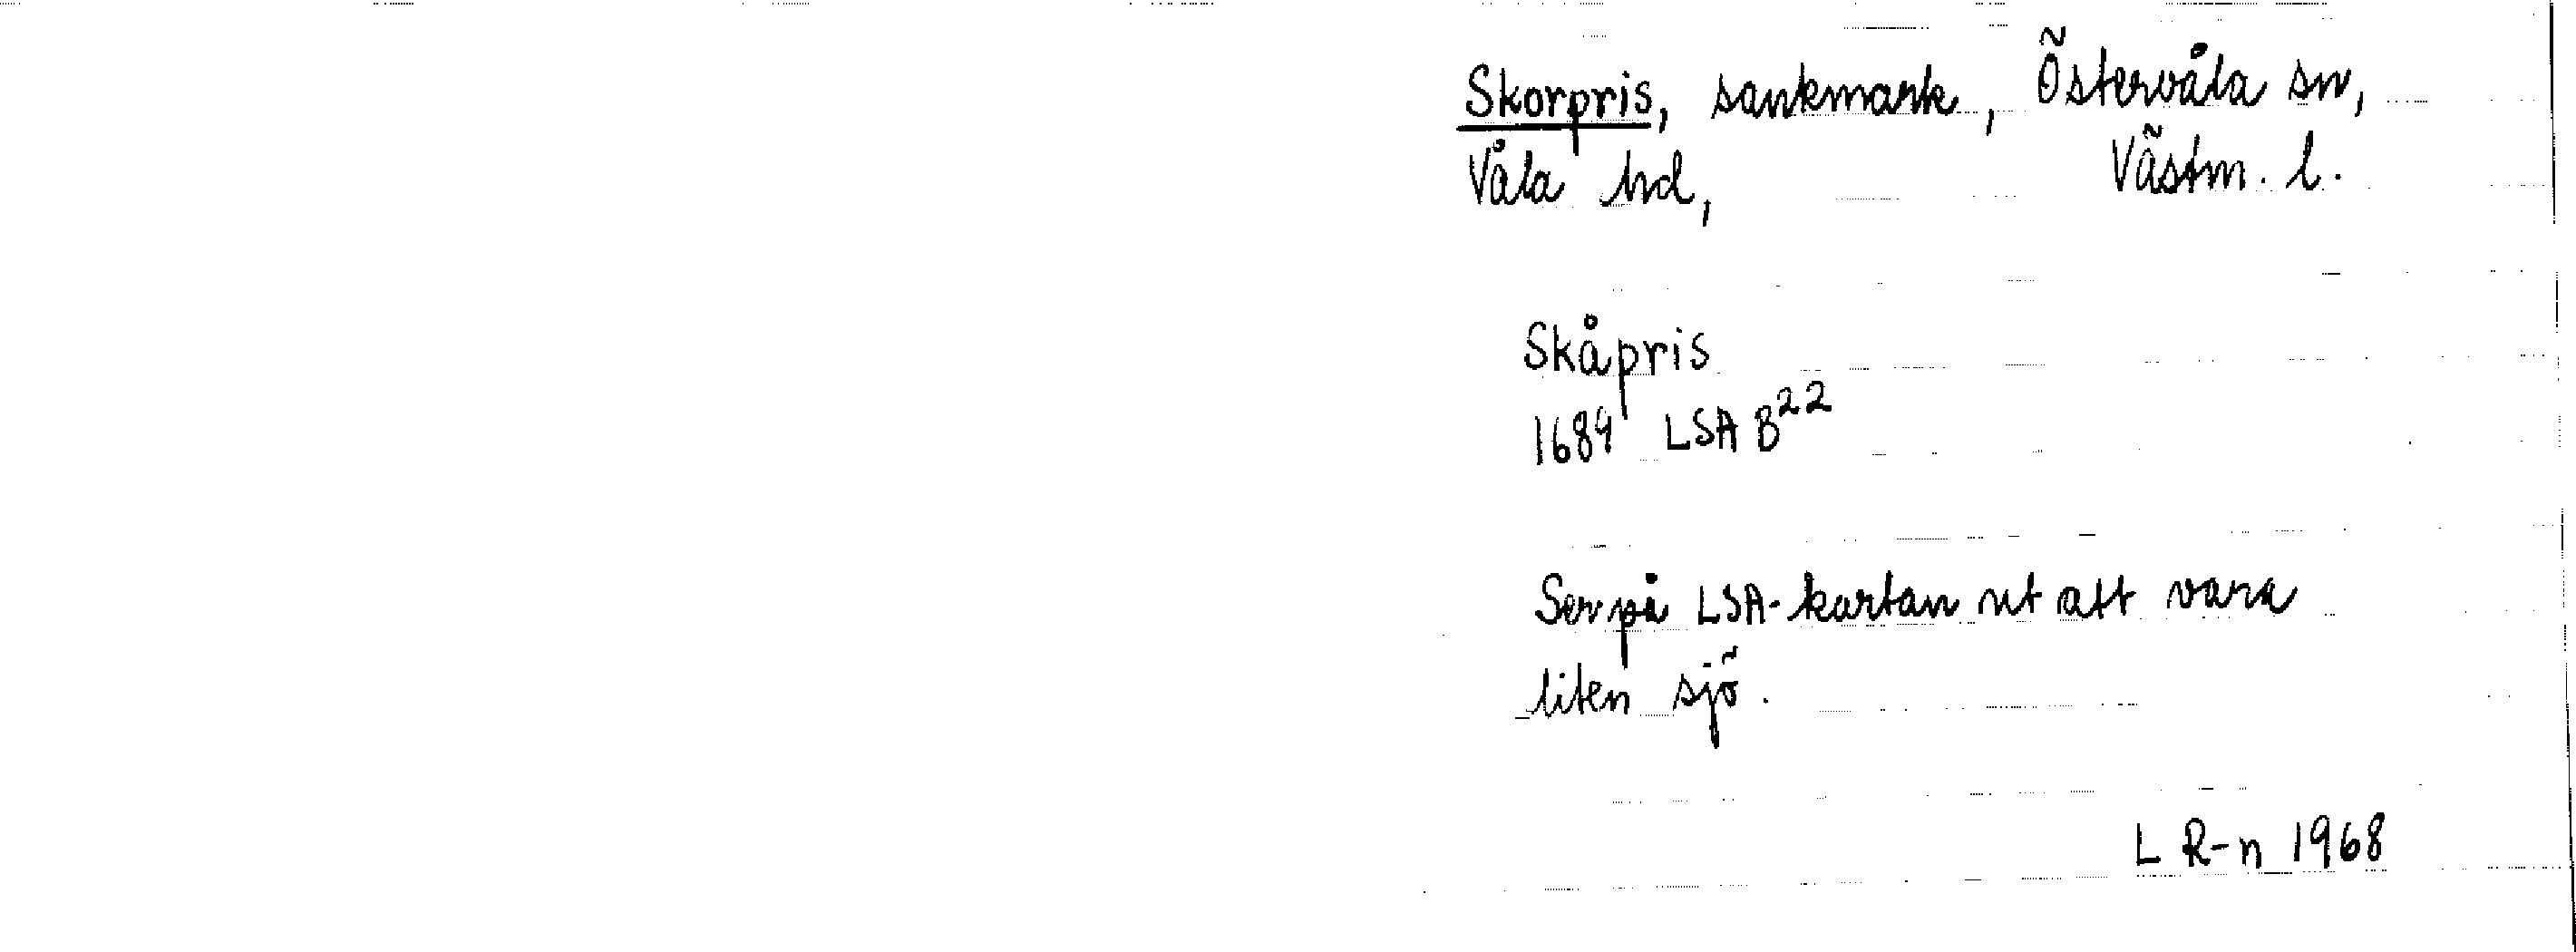 Skorpris, sankmark, Östervåla sn,
Våla hd, Västm. l.
Skåpris
1689 LSA B²²
Ser på LSA-kartan ut att vara
liten sjö.
L R-n 1968